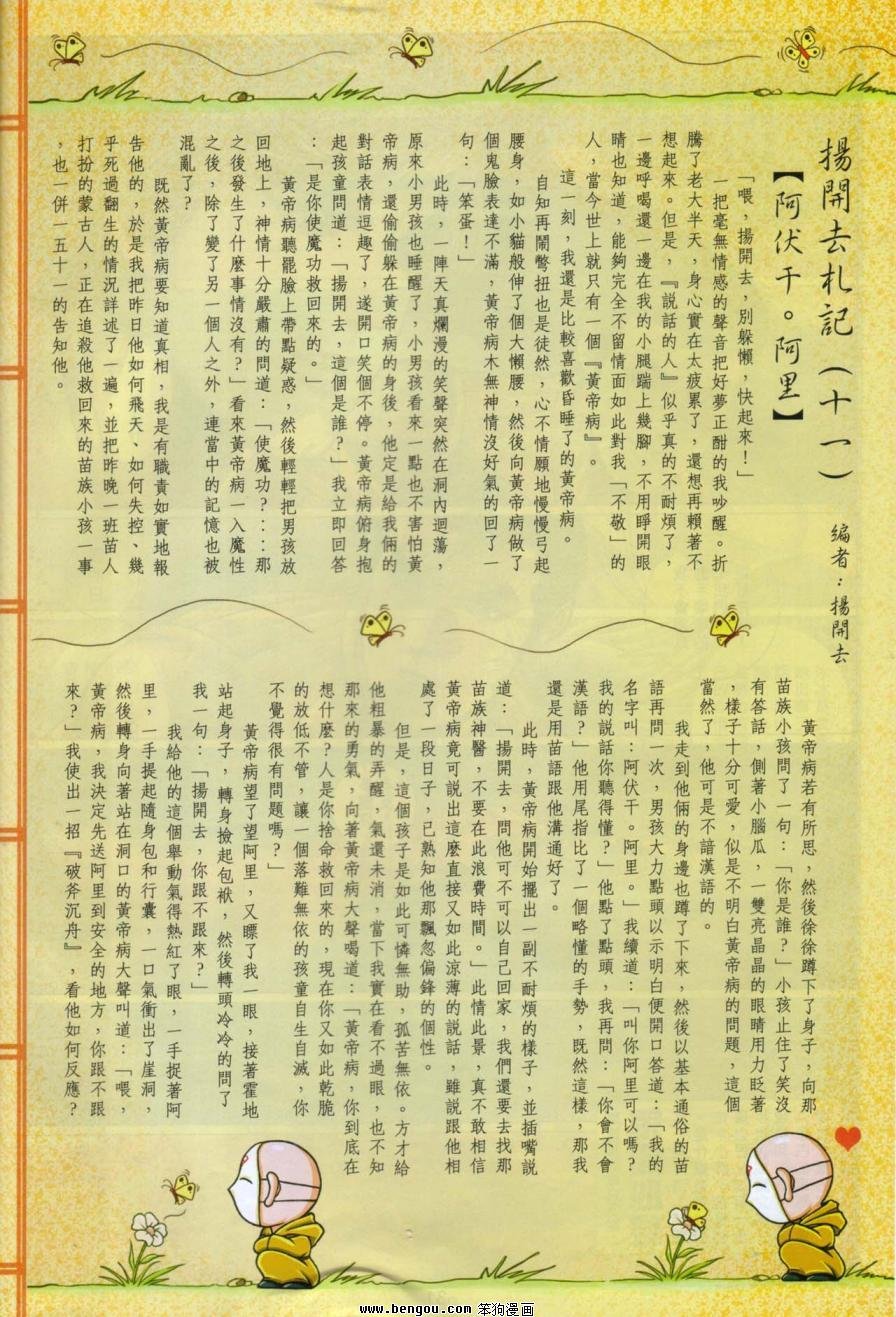 揚開去札記（十一）　編者：揚開去
【阿伏干。阿里】
「喂，揚開去，別躲懶，快起來！」
一把毫無情感的聲音把好夢正酣的我吵醒。折
騰了老大半天，身心實在太疲累了，還想再賴著不
想起來。但是，『說話的人』似乎真的不耐煩了，
一邊呼喝還一邊在我的小腿踹上幾腳，不用睜開眼
睛也知道，能夠完全不留情面如此對我「不敬」的
人，當今世上就只有一個『黃帝病』。
這一刻，我還是比較喜歡昏睡了的黃帝病。
自知再鬧彆扭也是徒然，心不情願地慢慢弓起
腰身，如小貓般伸了個大懶腰，然後向黃帝病做了
個鬼臉表達不滿，黃帝病木無神情沒好氣的回了一
句：「笨蛋！」
此時，一陣天真爛漫的笑聲突然在洞內迴蕩，
原來小男孩也睡醒了，小男孩看來一點也不害怕黃
帝病，還偷偷躲在黃帝病的身後，他定是給我倆的
對話表情逗趣了，遂開口笑個不停。黃帝病俯身抱
起孩童問道：「揚開去，這個是誰？」我立即回答
：「是你使魔功救回來的。」
黃帝病聽罷臉上帶點疑惑，然後輕輕把男孩放
回地上，神情十分嚴肅的問道：「使魔功？：：那
之後發生了什麼事情沒有？」看來黃帝病一入魔性
之後，除了變了另一個人之外，連當中的記憶也被
混亂了？
既然黃帝病要知道真相，我是有職責如實地報
告他的，於是我把昨日他如何飛天、如何失控、幾
乎死過翻生的情況詳述了一遍，並把昨晚一班苗人
打扮的蒙古人，正在追殺他救回來的苗族小孩一事
，也一併一五十一的告知他。
黃帝病若有所思，然後徐徐蹲下了身子，向那
苗族小孩問了一句：「你是誰？」小孩止住了笑沒
有答話，側著小腦瓜，一雙亮晶晶的眼睛用力眨著
，樣子十分可愛，似是不明白黃帝病的問題，這個
當然了，他可是不諳漢語的。
我走到他倆的身邊也蹲了下來，然後以基本通俗的苗
語再問一次，男孩大力點頭以示明白便開口答道：「我的
名字叫：阿伏干。阿里。」我續道：「叫你阿里可以嗎？
我的說話你聽得懂？」他點了點頭，我再問：「你會不會
漢語？」他用尾指比了一個略懂的手勢，既然這樣，那我
還是用苗語跟他溝通好了。
此時，黃帝病開始擺出一副不耐煩的樣子，並插嘴說
道：「揚開去，問他可不可以自己回家，我們還要去找那
苗族神醫，不要在此浪費時間。」此情此景，真不敢相信
黃帝病竟可說出這麼直接又如此涼薄的說話，雖說跟他相
處了一段日子，已熟知他那飄忽偏鋒的個性。
但是，這個孩子是如此可憐無助，孤苦無依。方才給
他粗暴的弄醒，氣還未消，當下我實在看不過眼，也不知
那來的勇氣，向著黃帝病大聲喝道：「黃帝病，你到底在
想什麼？人是你捨命救回來的，現在你又如此乾脆
的放低不管，讓一個落難無依的孩童自生自滅，你
不覺得很有問題嗎？」
黃帝病望了望阿里，又瞟了我一眼，接著霍地
站起身子，轉身撿起包袱，然後轉頭冷冷的問了
我一句：「揚開去，你跟不跟來？」
我給他的這個舉動氣得熱紅了眼，一手捉著阿
里，一手提起隨身包和行囊，一口氣衝出了崖洞，
然後轉身向著站在洞口的黃帝病大聲叫道：「喂，
黃帝病，我決定先送阿里到安全的地方，你跟不跟
來？」我使出一招『破斧沉舟』，看他如何反應？
www.bengou.com 笨狗漫画